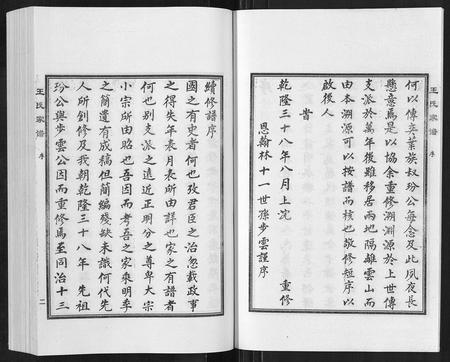 王氏家譜
序
何以傳奕葉族叔玢公每念及此夙夜長
懸意焉是以協余重修溯淵源於上世傳
支派於萬年後雖移居兩地隔離雲山而
由本溯源可以按譜而核也敬修短序以
啟後人
旹
乾隆三十八年八月上浣 重修
恩翰林十一世孫步雲謹序
續修譜序
國之有史者何也攷君臣之治忽載政事
之得失年表月表所由詳也家之有譜者
何也別支派之遠近正明分之尊卑大宗
小宗所由昭也吾因而考吾之家乘明季
之簡遺有成稿但簡編殘缺未識何代先
人所創修及我朝乾隆三十八年 先祖
玢公與步雲公因而重修焉至同治十三
王氏家譜
序
二